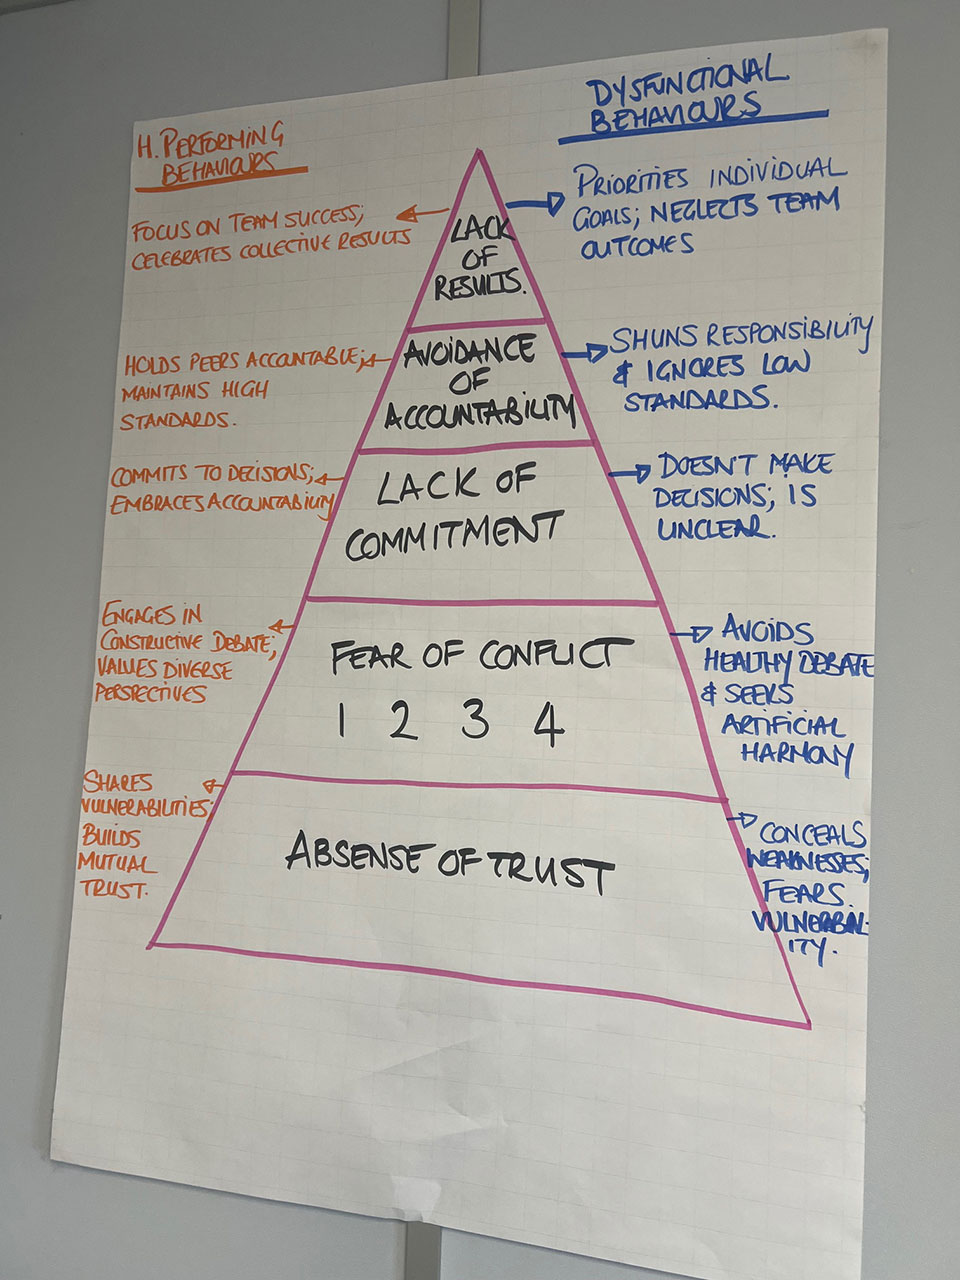 H. PERFORMING
BEHAVIOURS
DYSFUNCTIONAL
BEHAVIOURS
FOCUS ON TEAM SUCCESS;
CELEBRATES COLLECTIVE RESULTS
LACK
OF
RESULTS.
PRIORITIES INDIVIDUAL
GOALS; NEGLECTS TEAM
OUTCOMES
HOLDS PEERS ACCOUNTABLE;
MAINTAINS HIGH
STANDARDS.
AVOIDANCE
OF
ACCOUNTABILITY
SHUNS RESPONSIBILITY
& IGNORES LOW
STANDARDS.
COMMITS TO DECISIONS;
EMBRACES ACCOUNTABILITY
LACK OF
COMMITMENT
DOESN'T MAKE
DECISIONS; IS
UNCLEAR.
ENGAGES IN
CONSTRUCTIVE DEBATE;
VALUES DIVERSE
PERSPECTIVES
FEAR OF CONFLICT
1 2 3 4
AVOIDS
HEALTHY DEBATE
& SEEKS
ARTIFICIAL
HARMONY
SHARES
VULNERABILITIES;
BUILDS
MUTUAL
TRUST.
ABSENSE OF TRUST
CONCEALS
WEAKNESSES;
FEARS.
VULNERABIL-
ITY.